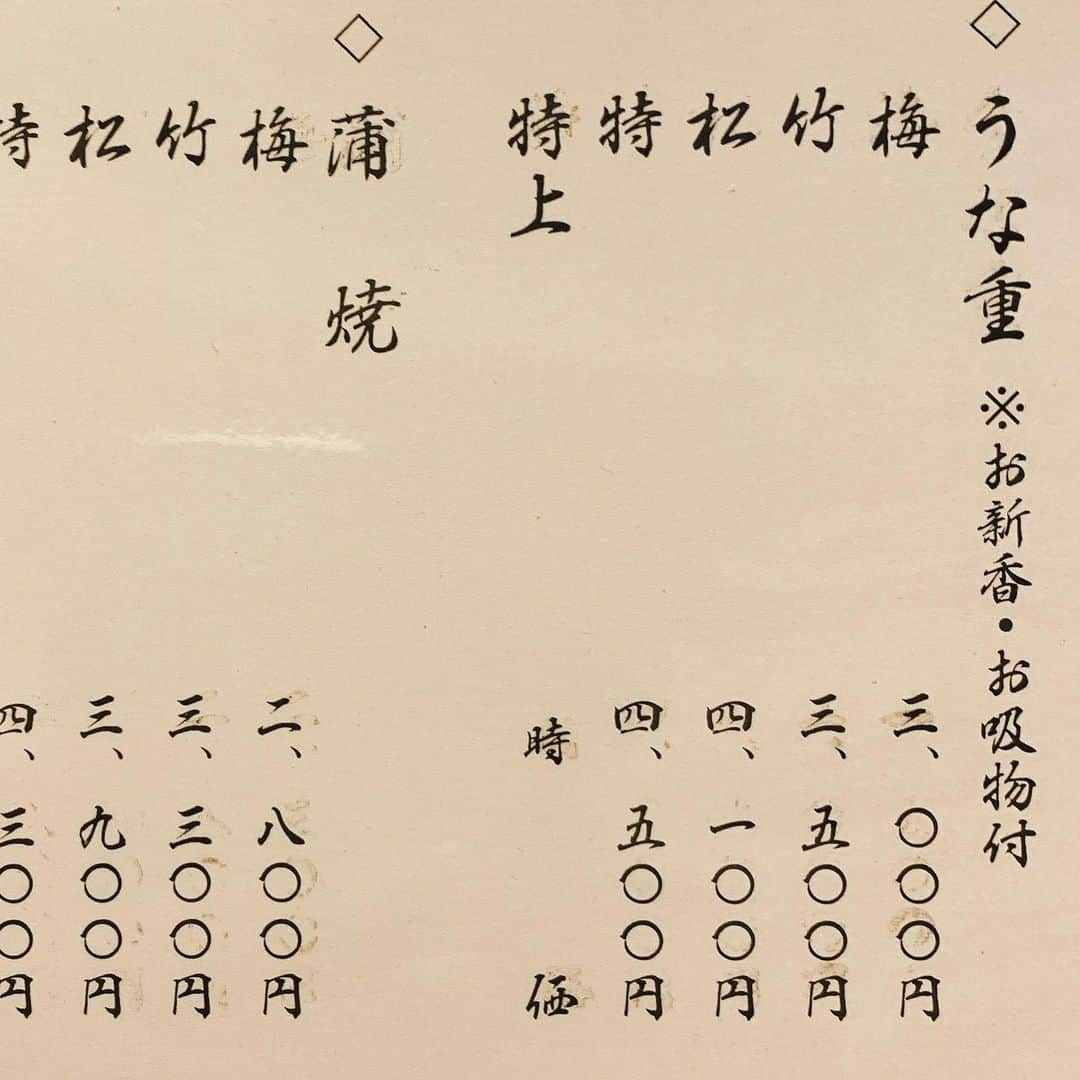 ◇うな重 ※お新香・お吸物付
梅 三、〇〇〇円
竹 三、五〇〇円
松 四、一〇〇円
特 四、五〇〇円
特上 時価
◇蒲焼
梅 二、八〇〇円
竹 三、三〇〇円
松 三、九〇〇円
特 四、三〇〇円